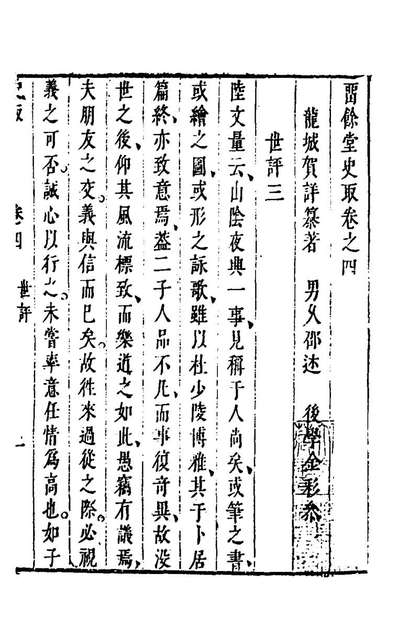 畱餘堂史取卷之四
龍城賀詳纂著　男久邵述　後學金彩叅
世評三
陸文量云、山陰夜興一事、見稱于人尚矣、或筆之書、
或繪之圖、或形之詠歌、雖以杜少陵博雅、其于卜居
篇終、亦致意焉、葢二子人品不凡、而事復竒異、故没
世之後、仰其風流標致、而樂道之如此、愚竊有議焉、
夫朋友之交、義與信而已矣、故徃來過從之際、必視
義之可否、誠心以行之、未嘗率意任情爲高也、如子
史取　卷四　世評　一